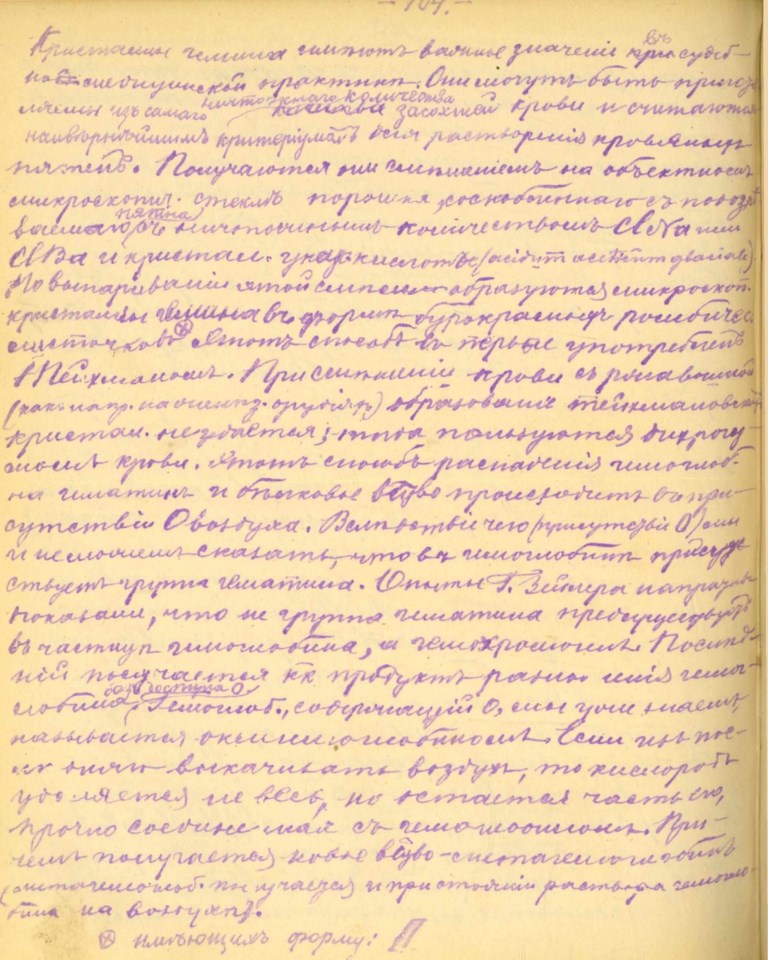 - 104. -
Кристаллы гемина имѣютъ важное значеніе въ судеб-
но-медицинской практикѣ. Они могутъ быть пригото-
влены изъ самаго ничтожнаго количества засохшей крови и считаются
наивѣрнѣйшимъ критеріумомъ для растворенія кровяныхъ
пятенъ. Получаются они на объектномъ
микроскопич. стеклѣ порошка, соскобленнаго съ подозрѣ-
ваемаго пятна, съ ничтожнымъ количествомъ ClNa или
ClBa и кристал. укс. кислотъ (acidum aceticum glaciale).
По выпариваніи этой смѣси образуются микроскоп.
кристаллы гемина въ формѣ бурокрасныхъ ромбичес.
листочковъ ⊗ Этотъ способъ впервые употребленъ
Тейхманомъ. При смѣшеніи крови съ ржавчиной
(какъ напр. на орудіяхъ) образованія тейхмановскихъ
кристал. не удается; тогда пользуются
крови. Этотъ способъ распаденія гемогло-
на гематинъ и бѣлковое в-во происходитъ въ при-
сутствіи О воздуха. Вслѣдствіе чего (присутствія О) мы
и не можемъ сказать, что въ гемоглобинѣ присут-
ствуетъ группа гематина. Опыты Г. Зейлера напротивъ
показали, что не группа гематина
въ частицѣ гемоглобина, а гемохромогенъ. Послѣд-
ній получается как продуктъ гемо-
глобина безъ доступа О. Гемоглоб., содержащій О, мы уже знаемъ,
называется оксигемоглобиномъ. Если изъ пос-
выкачивать воздухъ, то кислородъ
удаляется не весь, но остается часть его,
прочно соединенная съ гемоглобиномъ. При-
чемъ получается новое в-во - метагемоглобинъ
(метагемоглоб. получается и при стояніи раствора гемогло-
бина на воздухѣ).
⊗ имѣющихъ форму: